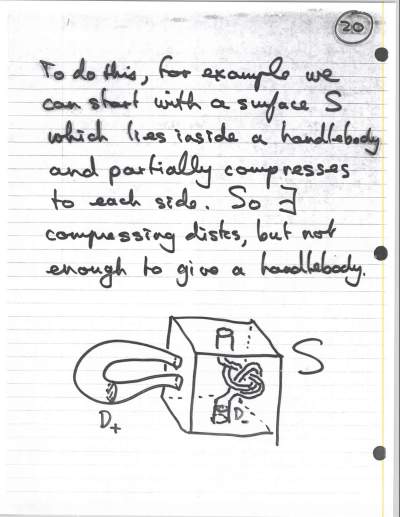 20
To do this, for example we
can start with a surface S
which lies inside a handlebody
and partially compresses
to each side. So ∃
compressing disks, but not
enough to give a handlebody.
S
D₊
D₋